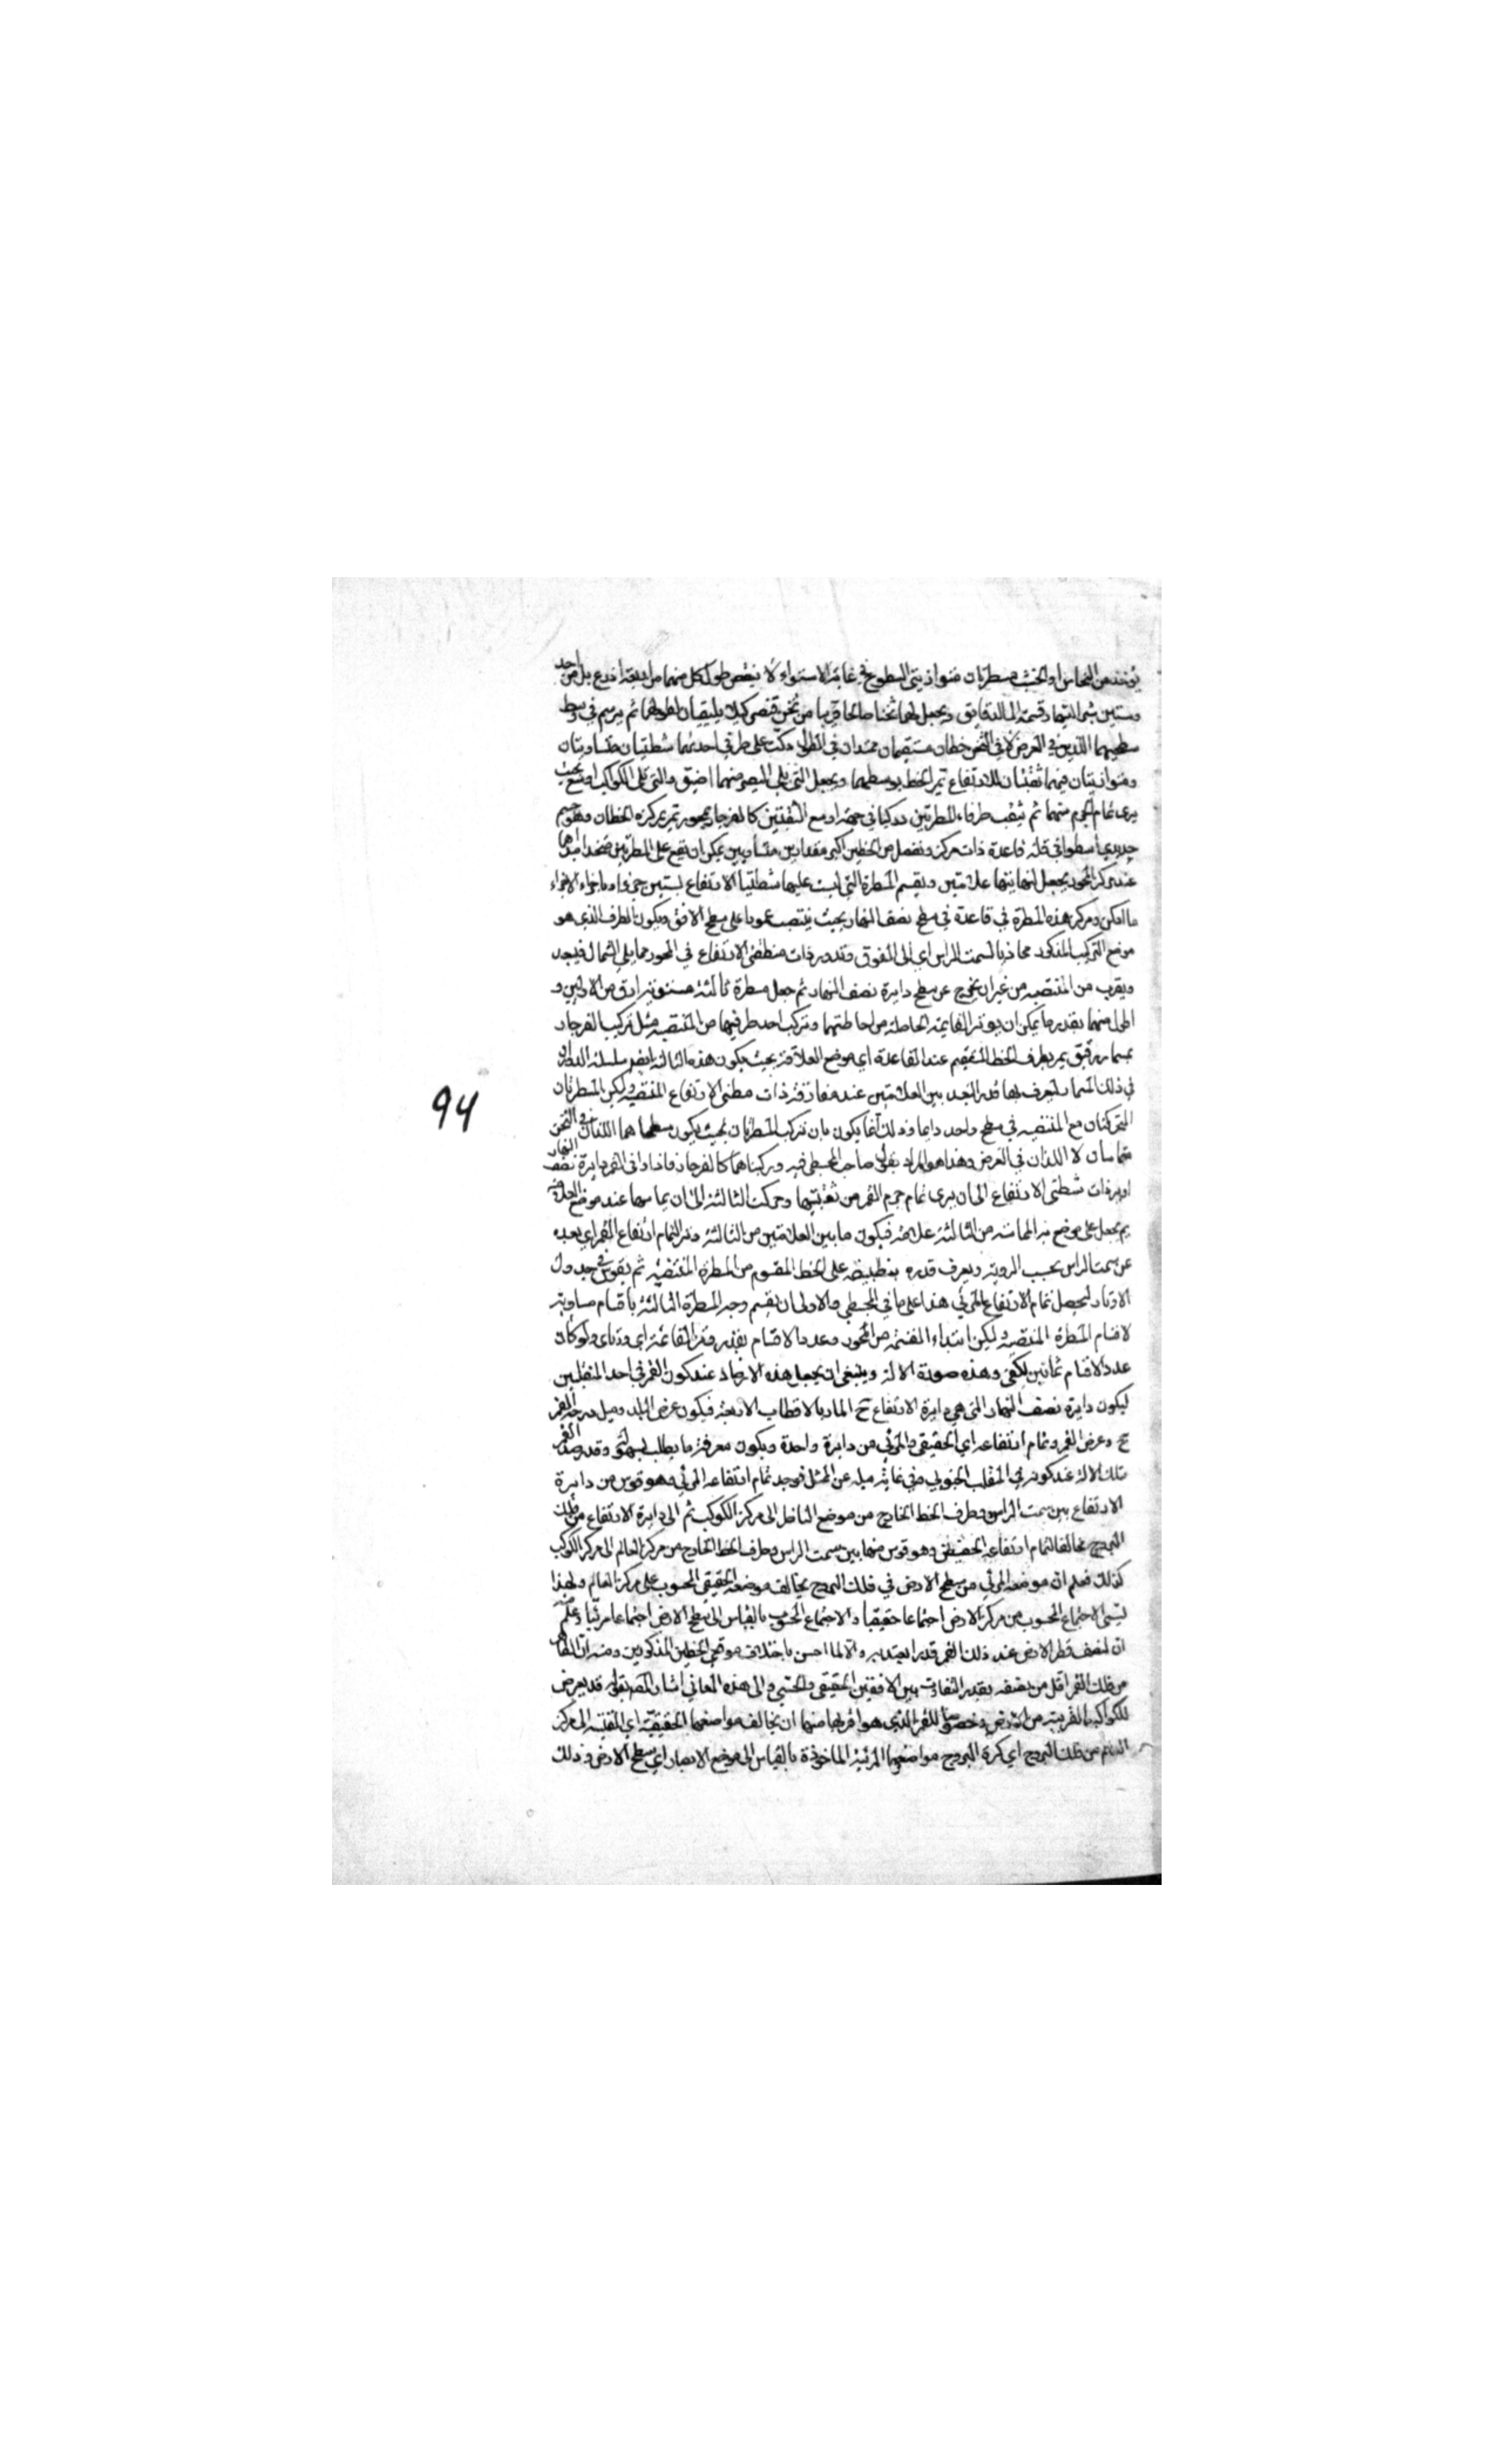 يؤخذ من النحاس او الخشب مسطرتان متوازيتي السطوح في غاية الاستواء لا ينقص طول كل منهما من اربعة اذرع بل من احد
وستين شعيرا قسمة الى الدقايق ويجعل لهما ثخنا صالحا
سطحيهما اللذين في العرض لا في الثخن خطان مستقيمان ممتدان في الطول ركبت على طرفي احديهما شظيتان متساويتان
ومتوازيتان فيهما ثقبتان للارتفاع تمر الخط بوسطهما ويجعل التي يلي البصر منهما اضيق والتي تلي الكوكب اوسع بحيث
يرى تمام الجرم منهما ثم يثقب طرفا المسطرتين كالفرجار بمحور تمر بمركزه الخطان وهو جسم
حديدي اسطواني قلته قاعدة ذات مركز ويفصل من الخطين اكبر مقدارين متساويين يمكن ان يقع على المسطرتين
عند مركز المحور يجعل لنهايتها علامتين ويقسم المسطرة التي ليست عليها شظيتا الارتفاع بستين جزوا وباجزاء الاجزاء
ما امكن ومركز هذه المسطرة في قاعدة في سطح نصف النهار بحيث ينتصب عمودا على سطح الافق ويكون الطرف الذي هو
موضع التركيب المذكور محاذيا لسمت الراس اي الى الفوق وتدور ذات شظيتي الارتفاع في المحور مما يلي الشمال فيبعد
ويقرب من المنتصبه من غير ان يخرج عن سطح دايرة نصف النهار ثم جعل مسطرة ثالثة مستوية ادق من الاوليين و
اطول منهما بقدر ما يمكن ان يوتر القايمة الحاصلة من احاطتهما وتركب احد طرفيها من المنتصبه مثل تركيب الفرجار
بمسمار دقيق يمر بطرف الخط المستقيم عند القاعدة اي موضع العلاقة بحيث يكون هذه الثالثة ايضا
في ذلك المسمار ليعرف بها قدر البعد بين العلامتين عند مفارقة ذات شظيتي الارتفاع المنتصبه وليكن المسطرتان
المتحركتان مع المنتصبه في سطح واحد دايما وذلك انما يكون بان تتركب المسطرتان بحيث يكون سطحاهما اللذان في الثخن
متماسان لا اللذان في العرض وهذا هو المراد بقول صاحب المجسطي فيه وركبناهما كالفرجار فاذا وافى القمر دايرة نصف النهار
اديرت ذات شظيتي الارتفاع الى ان يرى تمام جرم القمر من ثقبتيهما وحركت الثالثة الى ان يماسها عند موضع العلامة
ثم يجعل على موضع المماسة من الثالثة علامة فيكون ما بين العلامتين من الثالثة وتر لتمام ارتفاع القمر اي بعده
عن سمت الراس بحسب الروية ويعرف قدره بتطبيقه على الخط المقسوم من المسطرة المنتصبه ثم يقوس في جدول
الاوتار ليحصل تمام الارتفاع المرئي هذا على ما في المجسطي والاولى ان يقسم وجه المسطرة الثالثة باقسام مساوية
لاقسام المسطرة المنتصبه وليكن ابتداء القسمة من المحور وعدد الاقسام بقدر وتر القائمة اي ولو كان
عدد الاقسام ثمانين لكفى وهذه صورة الالة وينبغي ان يجعل هذه الارصاد عند كون القمر في احد المنقلبين
ليكون دايرة نصف النهار التي هي دايرة الارتفاع ح المارة بالاقطاب الاربعة فيكون عرض البلد وميل درجة القمر
ح وعرض القمر وتمام ارتفاعه اي الحقيقي والمرئي من دايرة واحدة ويكون معرفة ما يطلب بسهولة وقد رصد القمر
بتلك الالة عند كونه في المنقلب الجنوبي وفي غاية ميله عن الممثل فوجد تمام ارتفاعه المرئي وهو قوس من دايرة
الارتفاع بين سمت الراس وطرف الخط الخارج من موضع الناظر الى مركز الكوكب ثم الى دايرة الارتفاع من فلك
البروج مخالفا لتمام ارتفاعه الحقيقي وهو قوس منها بين سمت الراس وطرف الخط الخارج من مركز العالم الى مركز الكوكب
كذلك فعلم ان موضعه المرئي من سطح الارض في فلك البروج يخالف موضعه الحقيقي المحسوب على مركز العالم ولهذا
يسمى الاجتماع المحسوب من مركز الارض اجتماعا حقيقيا والاجتماع المحسوب بالقياس الى سطح الارض اجتماعا مرئيا وعلم
ان لنصف قطر الارض عند ذلك القمر قدرا يعتد به والا لما احس باختلاف موقعي الخطين المذكورين ومنه ان الظاهر
من فلك القمر اقل من نصفه بقدر التفاوت بين الافقين الحقيقي والحسي والى هذه المعاني اشار المص بقوله قد يعرض
للكواكب القريبة من الارض وخصوصا للقمر الذي هو اقربها منها ان يخالف مواضعها الحقيقية اي المقيسة الى مركز
العالم من فلك البروج اي كرة البروج مواضعها المرئية الماخوذة بالقياس الى موضع الابصار اي سطح الارض وذلك
94